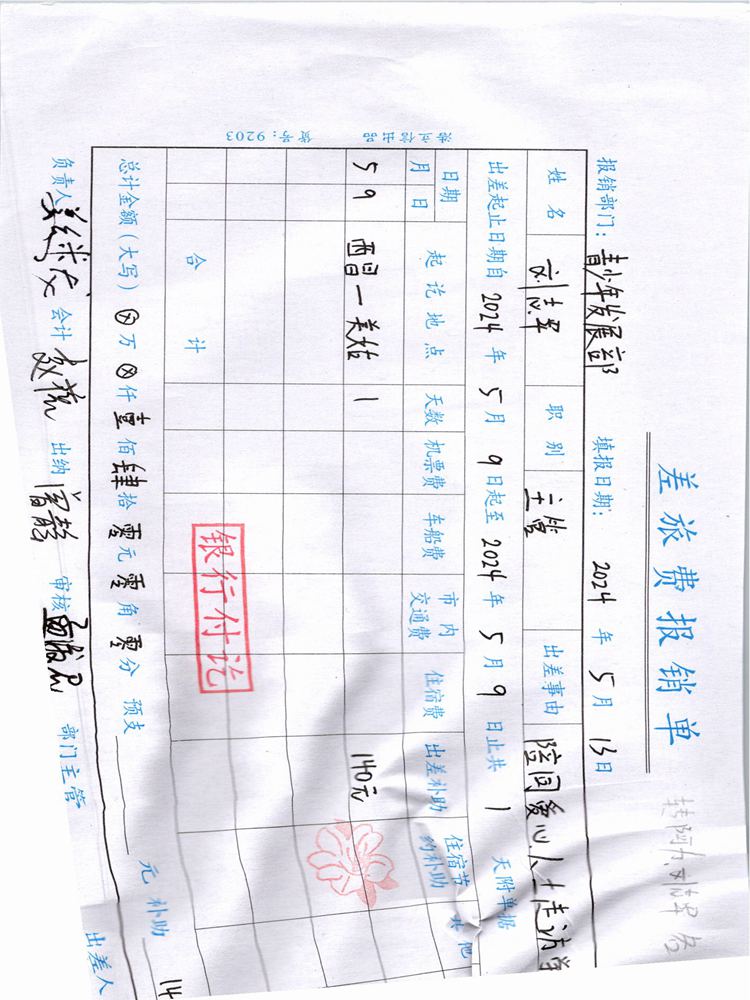 差旅费报销单
报销部门：青少年发展部 填报日期：2024年5月13日
姓名 刘志翠 职别 主管 出差事由 陪同爱心人士走访学
出差起止日期自2024年5月9日起至2024年5月9日止共1天附单据
日期 起讫地点 天数 机票费 车船费 市内交通费 住宿费 出差补助 住宿节约补助 其他
月 日
5 9 西昌—美姑 1 140元
合计
银行付讫
总计金额（大写）⊗万⊗仟壹佰肆拾零元零角零分 预支 元 补助 14
负责人 会计 出纳 审核 部门主管 出差人
浩立信出品 货号：9203